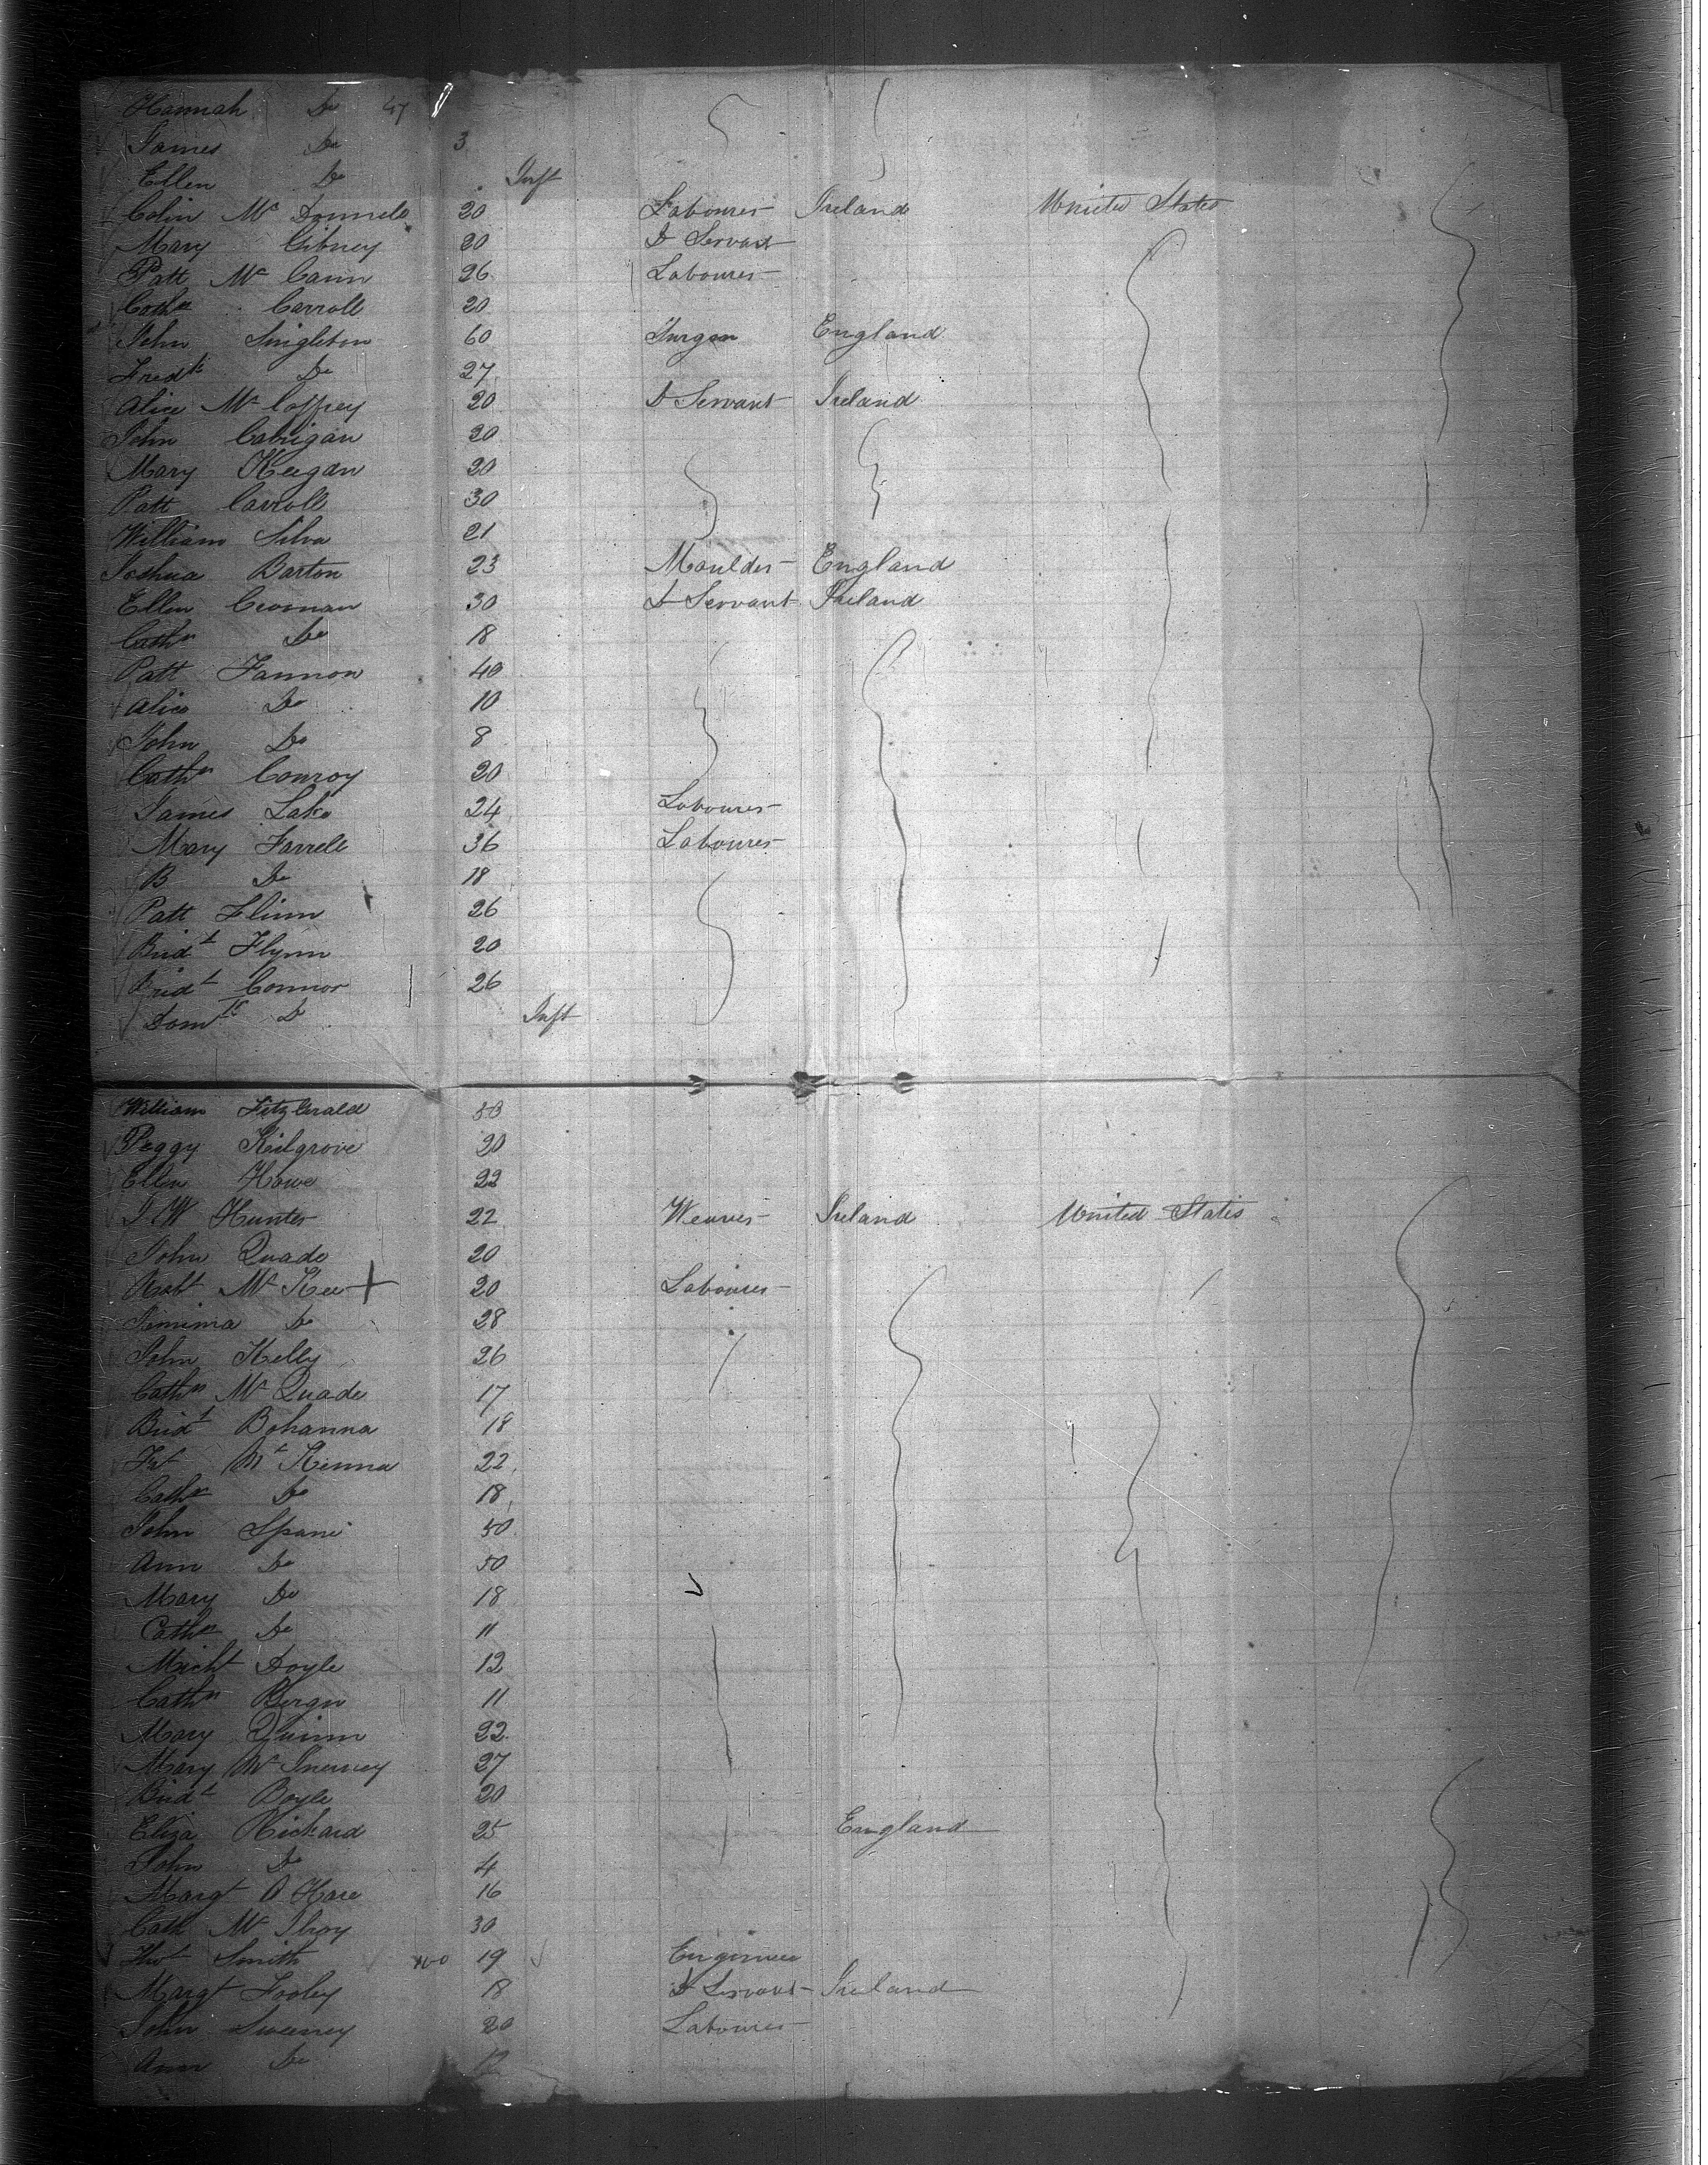 Hannah Do 47
James Do 3
Ellen Do Inft
Colin Mc Donnele 20 Labourer Ireland United States
Mary Gibney 20 D Servant
Patt Mc Cann 26 Labourer
Cathn Carroll 20
John Singleton 60 Surgon England
Fredk Do 27
Alice Mc Coffrey 20 D Servant Ireland
John Corrigan 20
Mary Keegan 20
Patt Carroll 30
William Silva 21
Joshua Barton 23 Moulder England
Ellen 30 D Servant Ireland
Cathn Do 18
Patt Fannon 40
Alice Do 10
John Do 8
Cathn Conroy 20
James Lake 24 Labourer
Mary Farrell 36 Labourer
B Do 18
Patt Flinn 26
Bridt Flynn 20
Bridt Connor 26
Domk D Inft
William Fitzgerald 50
Peggy Kilgrove 20
Ellen Howe 22
J. W Hunter 22 Weaver Ireland United States
John Quade 20
Robt Mc Kee 20 Labourer
Jemima Do 28
John Kelly 26
Cathn Mc Quade 17
Bridt Bohanna 18
Mc Kenna 22
Cathn Do 18
John Spani 50
Ann Do 50
Mary Do 18
Cathn Do 11
Michl Doyle 12
Cathn Bergn 11
Mary Quinn 22
Mary Mc Inerney 27
Bridt Boyle 20
Eliza Rickard 25 England
John D 4
Margt O Hare 16
Cath Mc Ilroy 30
Thos Smith 19 Engineer
Margt Fooley 18 D Servant Ireland
John Sweeney 20 Labourer
Ann Do 12